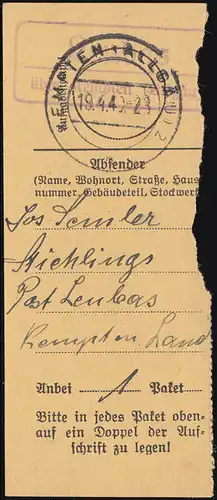 KEMPTEN (ALLGÄU)
19.4.4
Absender
(Name, Wohnort, Straße, Haus
nummer, Gebäudeteil, Stockwerk
Jos Semler
Post Leubas
Kempten Land
Anbei 1 Paket
Bitte in jedes Paket oben-
auf ein Doppel der Auf-
schrift zu legen!